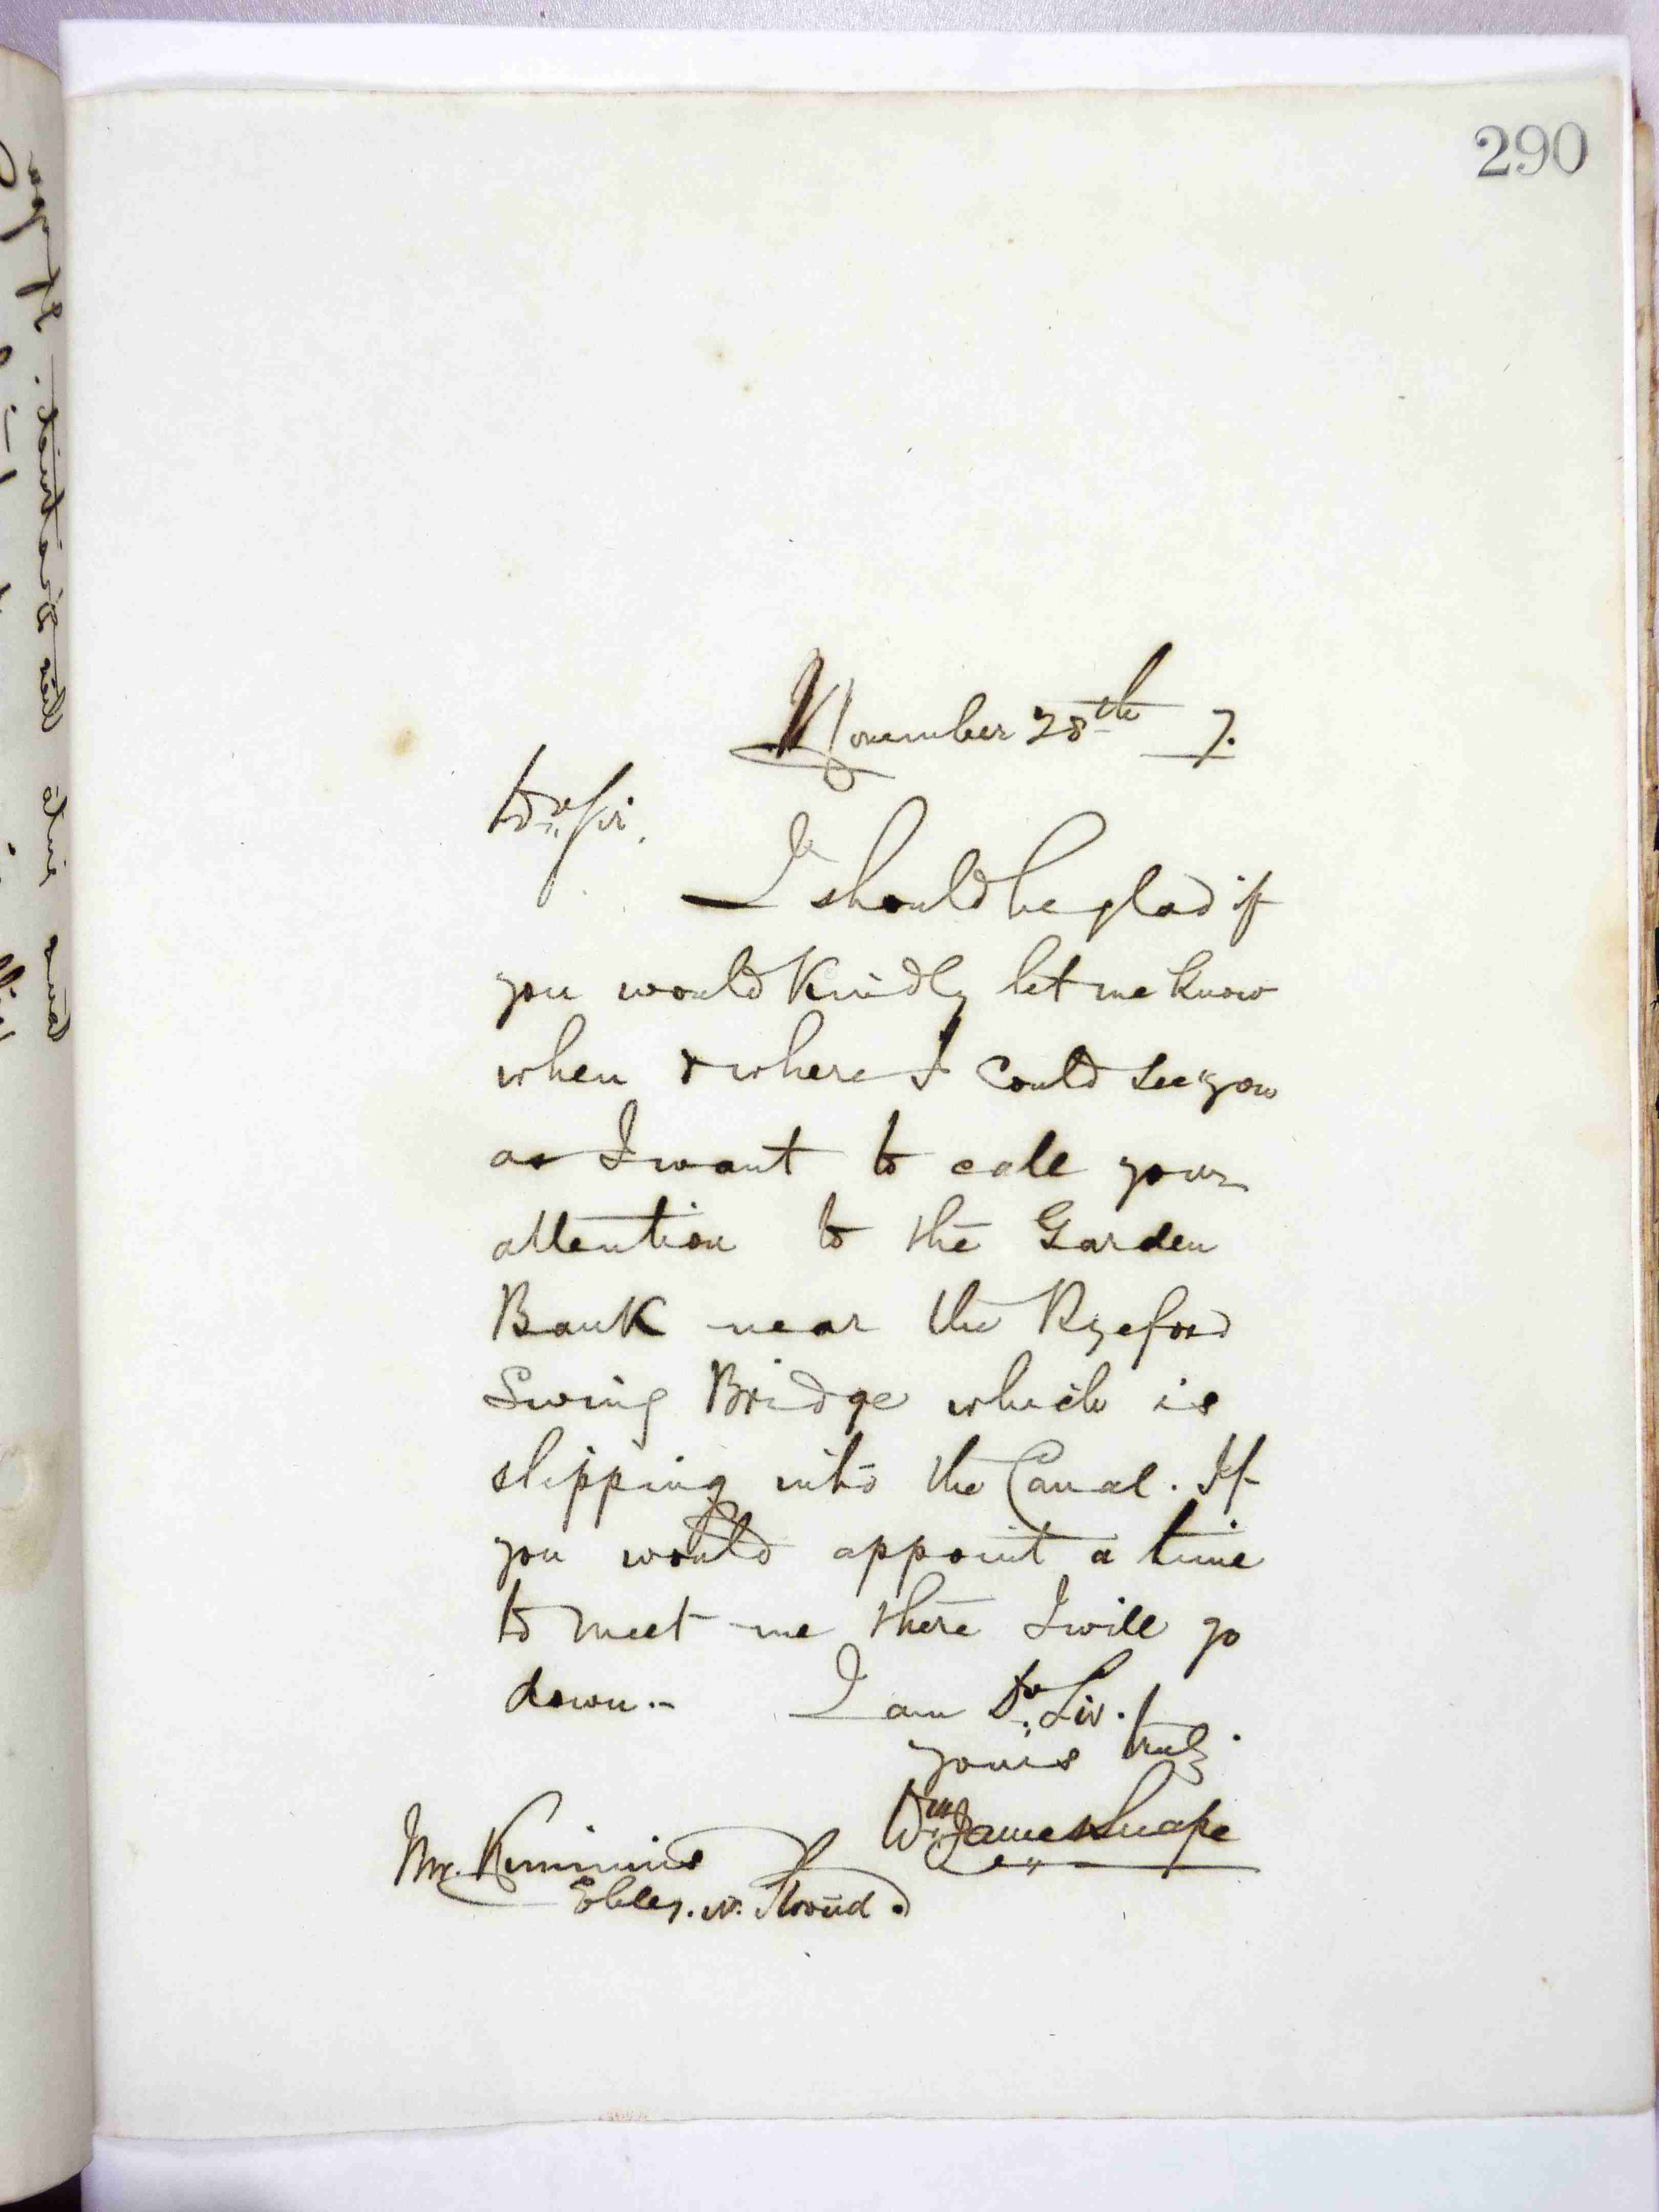 290
November 28th 7.
Dr Sir,
I should be glad if
you would Kindly let me know
when & where I could see you
as I want to call your
attention to the Garden
Bank near the Ryeford
Swing Bridge which is
slipping into the Canal. If
you would appoint a time
to meet me there I will go
down.- I am Dr Sir.
yours truly.
Wm James Snape
Mr. Kimmins
Ebley. nr. Stroud.